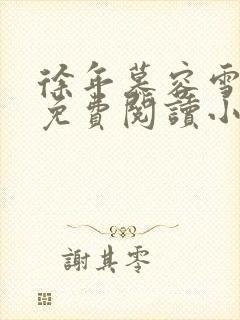 徐年慕容雪
免費閱讀小
謝其零